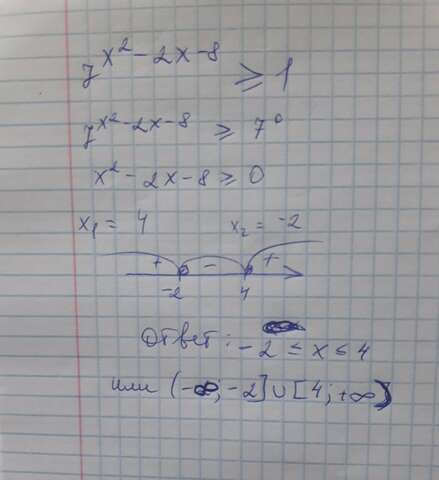 7^(x²-2x-8) ≥ 1
7^(x²-2x-8) ≥ 7⁰
x²-2x-8 ≥ 0
x₁ = 4 x₂ = -2
+ - +
-2 4
Ответ: -2 ≤ x ≤ 4
или (-∞; -2]∪[4; +∞)